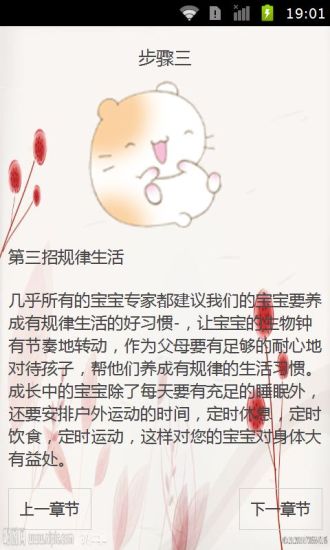 19:01
步骤三
第三招规律生活
几乎所有的宝宝专家都建议我们的宝宝要养
成有规律生活的好习惯-，让宝宝的生物钟
有节奏地转动，作为父母要有足够的耐心地
对待孩子，帮他们养成有规律的生活习惯。
成长中的宝宝除了每天要有充足的睡眠外，
还要安排户外运动的时间，定时休息，定时
饮食，定时运动，这样对您的宝宝对身体大
有益处。
上一章节
下一章节